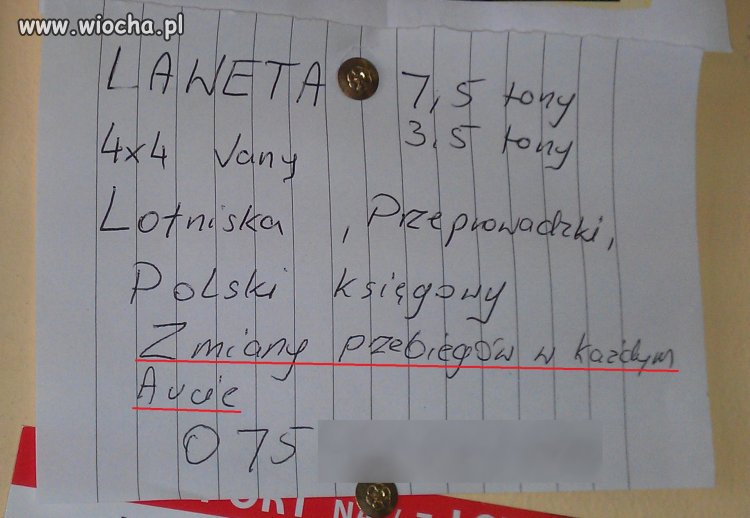 www.wiocha.pl
LAWETA 7,5 tony
3,5 tony
4x4 Vany
Lotniska, Przeprowadzki,
Polski księgowy
Zmiany przebiegów w każdym
Aucie
075